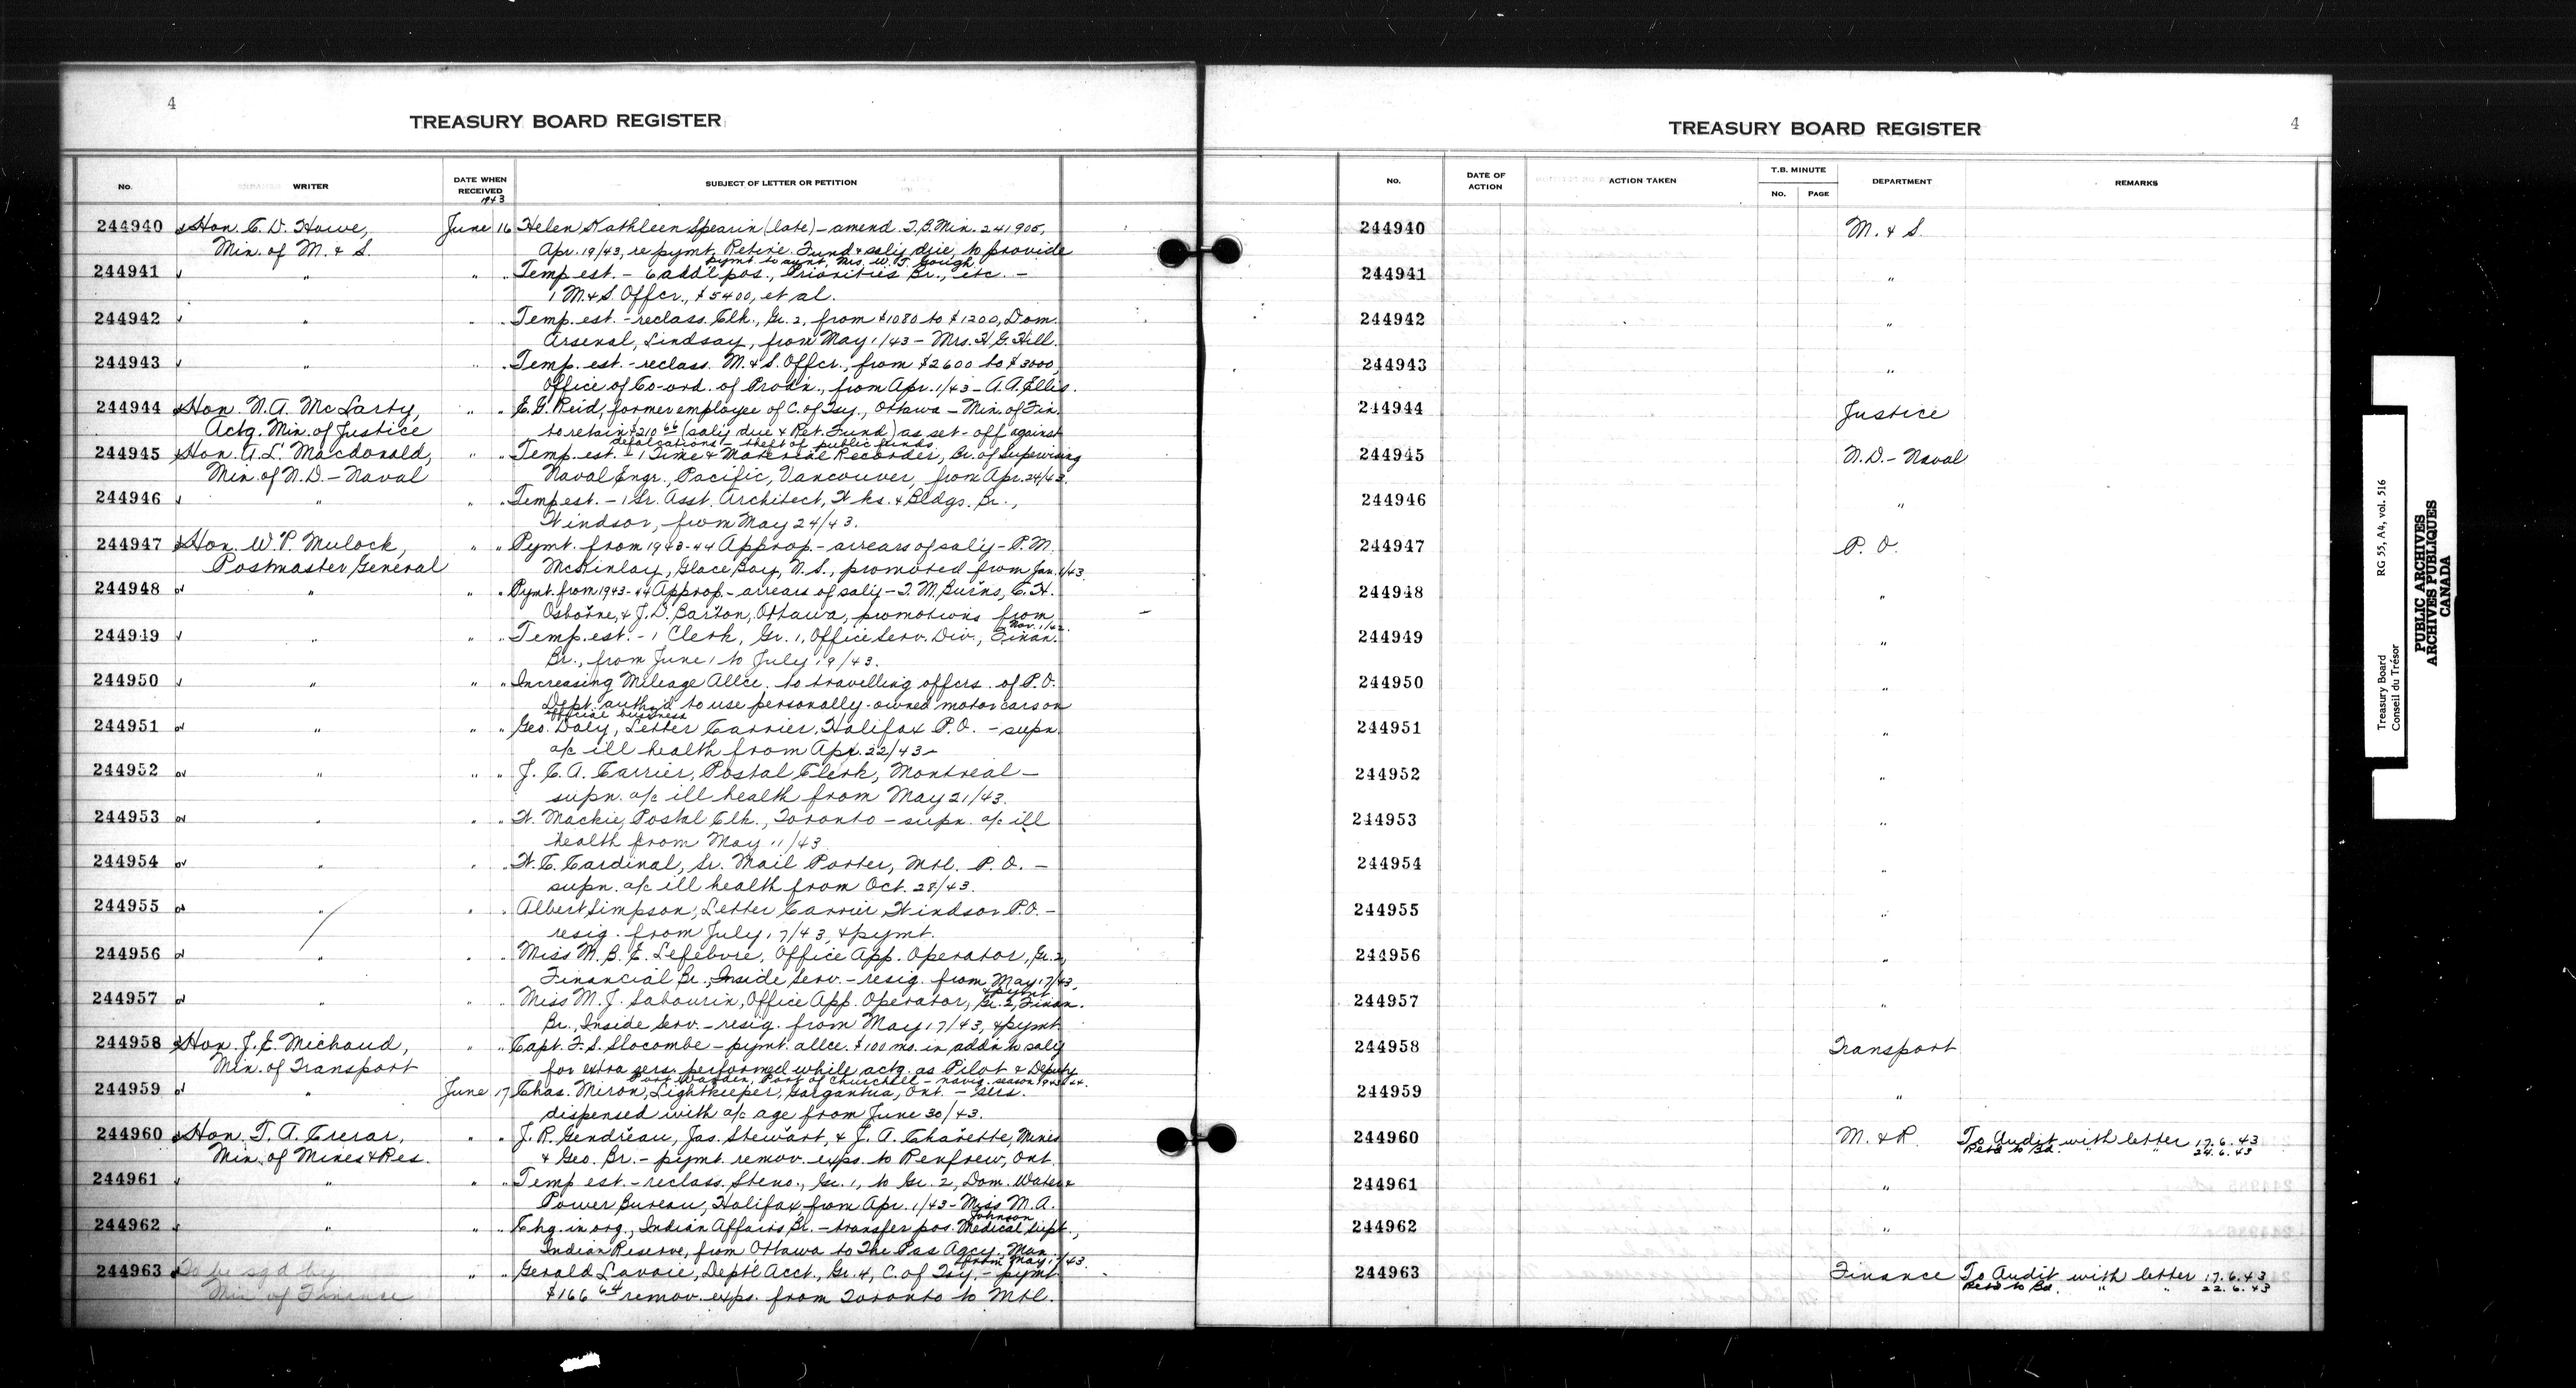 4
TREASURY BOARD REGISTER
No.
WRITER
DATE WHEN RECEIVED
1943
SUBJECT OF LETTER OR PETITION
244940 Hon. C. D. Howe, June 16 Helen Kathleen Spearin (late) - amend. T.B. Min. 241905,
Min. of M. & S. Apr. 19/43, re pymt. Retire. Fund & sal'y due, to provide
pymt. to aunt, Mrs. W. J. Gough.
244941 " " " Temp. est. - 6 add'l pos., Priorities Br., etc. -
1 M. & S. Offcr., $5400, et al.
244942 " " " Temp. est. - reclass. Clk., Gr. 2, from $1080 to $1200, Dom.
Arsenal, Lindsay, from May 1/43 - Mrs. H. G. Hill.
244943 " " " Temp. est. - reclass. M. & S. Offcr., from $2600 to $3000,
Office of Co-ord. of Prod'n., from Apr. 1/43 - A. A. Ellis.
244944 Hon. N. A. McLarty, " " E. G. Reid, former employee of C. of Tsy., Ottawa - Min. of Fin.
Actg. Min. of Justice to retain $210 66 (sal'y due & Ret. Fund) as set-off against
defalcations - theft of public funds.
244945 Hon. A. L. Macdonald, " " Temp. est. - 1 Time & Material Recorder, Br. of Supervising
Min. of N.D. - Naval Naval Engr., Pacific, Vancouver, from Apr. 24/43.
244946 " " " Temp. est. - 1 Gr. Asst. Architect, Wks. & Bldgs. Br.,
Windsor, from May 24/43.
244947 Hon. W. P. Mulock, " " Pymt. from 1943-44 Approp. - arrears of sal'y - P. M.
Postmaster General McKinlay, Glace Bay, N.S., promoted from Jan. 1/43.
244948 " " " Pymt. from 1943-44 Approp. - arrears of sal'y - T. M. Burns, C. H.
Osborne, & J. D. Barton, Ottawa, promotions from
Nov. 1/42.
244949 " " " Temp. est. - 1 Clerk, Gr. 1, Office Serv. Div., Finan.
Br., from June 1 to July 19/43.
244950 " " " Increasing Mileage Allce. to travelling offcrs. of P.O.
Dept. auth'd to use personally-owned motor cars on
official business
244951 " " " Geo. Daly, Letter Carrier, Halifax P.O. - supn.
a/c ill health from Apr. 22/43 -
244952 " " " J. C. A. Carrier, Postal Clerk, Montreal -
supn. a/c ill health from May 21/43.
244953 " " " W. Mackie, Postal Clk., Toronto - supn. a/c ill
health from May 11/43
244954 " " " W. C. Cardinal, Sr. Mail Porter, Mtl. P.O. -
supn. a/c ill health from Oct. 28/43.
244955 " " " Albert Simpson, Letter Carrier, Windsor P.O. -
resig. from July 17/43, & pymt.
244956 " " " Miss M. B. E. Lefebvre, Office App. Operator, Gr. 2,
Financial Br., Inside Serv. - resig. from May 17/43,
& pymt.
244957 " " " Miss M. J. Sabourin, Office App. Operator, Gr. 2, Finan.
Br., Inside Serv. - resig. from May 17/43, & pymt.
244958 Hon. J. E. Michaud, " " Capt. F. S. Slocombe - pymt. allce. $100 mo. in add'n to sal'y
Min. of Transport for extra sers. performed while actg. as Pilot & Deputy
Port Warden, Port of Churchill - navig. season 1943-44.
244959 " June 17 Chas. Miron, Lightkeeper, Gargantua, Ont. - sers.
dispensed with a/c age from June 30/43.
244960 Hon. T. A. Crerar, " " J. R. Gendreau, Jas. Stewart, & J. A. Charette, Mines
Min. of Mines & Res. & Geo. Br. - pymt. remov. exps. to Renfrew, Ont.
244961 " " " Temp. est. - reclass. Steno., Gr. 1, to Gr. 2, Dom. Water &
Power Bureau, Halifax, from Apr. 1/43 - Miss M. A.
Johnson
244962 " " " Chg. in org., Indian Affairs Br. - transfer pos. Medical Supt.,
Indian Reserve, from Ottawa to The Pas Agcy., Man.
from May 17/43.
244963 To be sgd by " " Gerald Lavoie, Dept'l Acct., Gr. 4, C. of Tsy. - pymt.
Min. of Finance $166 64 remov. exps. from Toronto to Mtl.
4
TREASURY BOARD REGISTER
No.
DATE OF ACTION
ACTION TAKEN
T.B. MINUTE
No. PAGE
DEPARTMENT
REMARKS
244940 M. & S.
244941 "
244942 "
244943 "
244944 Justice
244945 N.D. - Naval
244946 "
244947 P. O.
244948 "
244949 "
244950 "
244951 "
244952 "
244953 "
244954 "
244955 "
244956 "
244957 "
244958 Transport
244959 "
244960 M. & R. To Audit with letter 17.6.43
Retd to Bd. " " 24.6.43
244961 "
244962 "
244963 Finance To Audit with letter 17.6.43
Retd to Bd. " " 22.6.43
Treasury Board RG 55, A4, vol. 516
Conseil du Trésor
PUBLIC ARCHIVES
ARCHIVES PUBLIQUES
CANADA